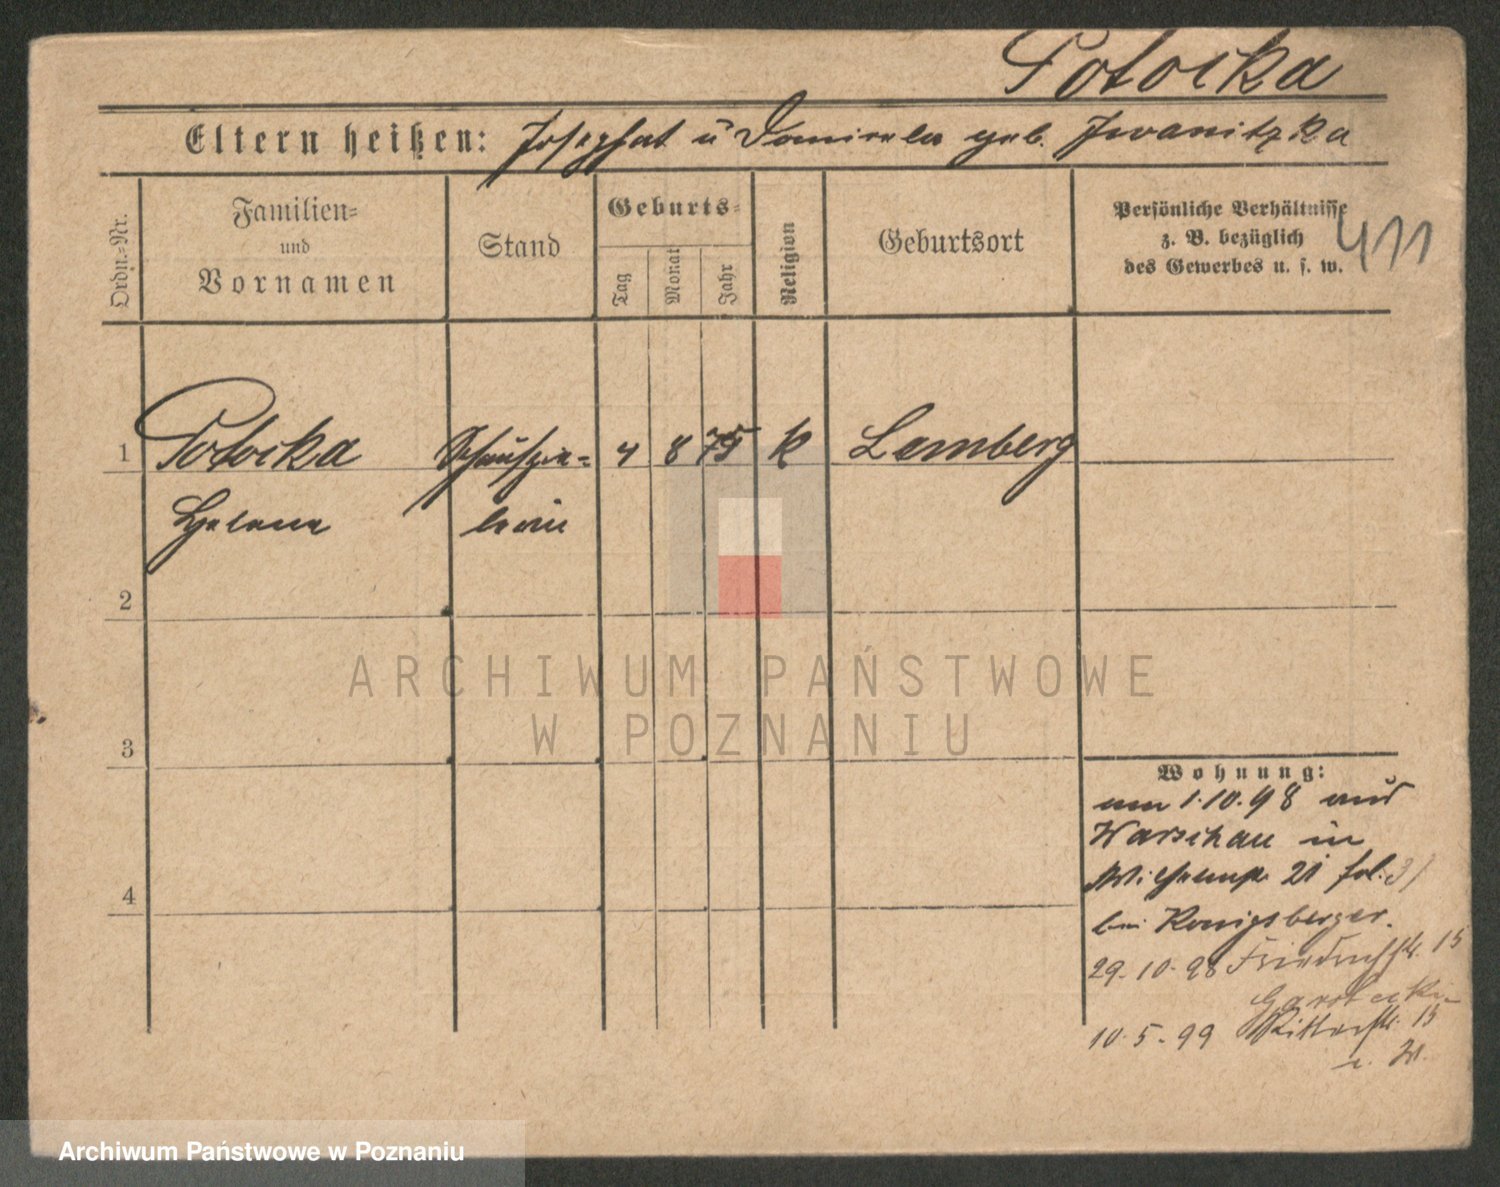 Potocka
Eltern heißen: Josephat u Domicela geb. Iwanitzka
Ordn.-Nr.
Familien-
und
Vornamen
Stand
Geburts-
Tag
Monat
Jahr
Religion
Geburtsort
Persönliche Verhältnisse
z. B. bezüglich
des Gewerbes u. s. w.
411
1 Potocka Schauspie- 4 8 75 k Lemberg
Helene lerin
2
3
4
ARCHIWUM PAŃSTWOWE
W POZNANIU
Wohnung:
am 1.10.98 aus
Warschau in
21 fol. 31
bei Konigsberger.
29.10.98 Friedrichstr. 15
10.5.99 Ritterstr. 15
Archiwum Państwowe w Poznaniu